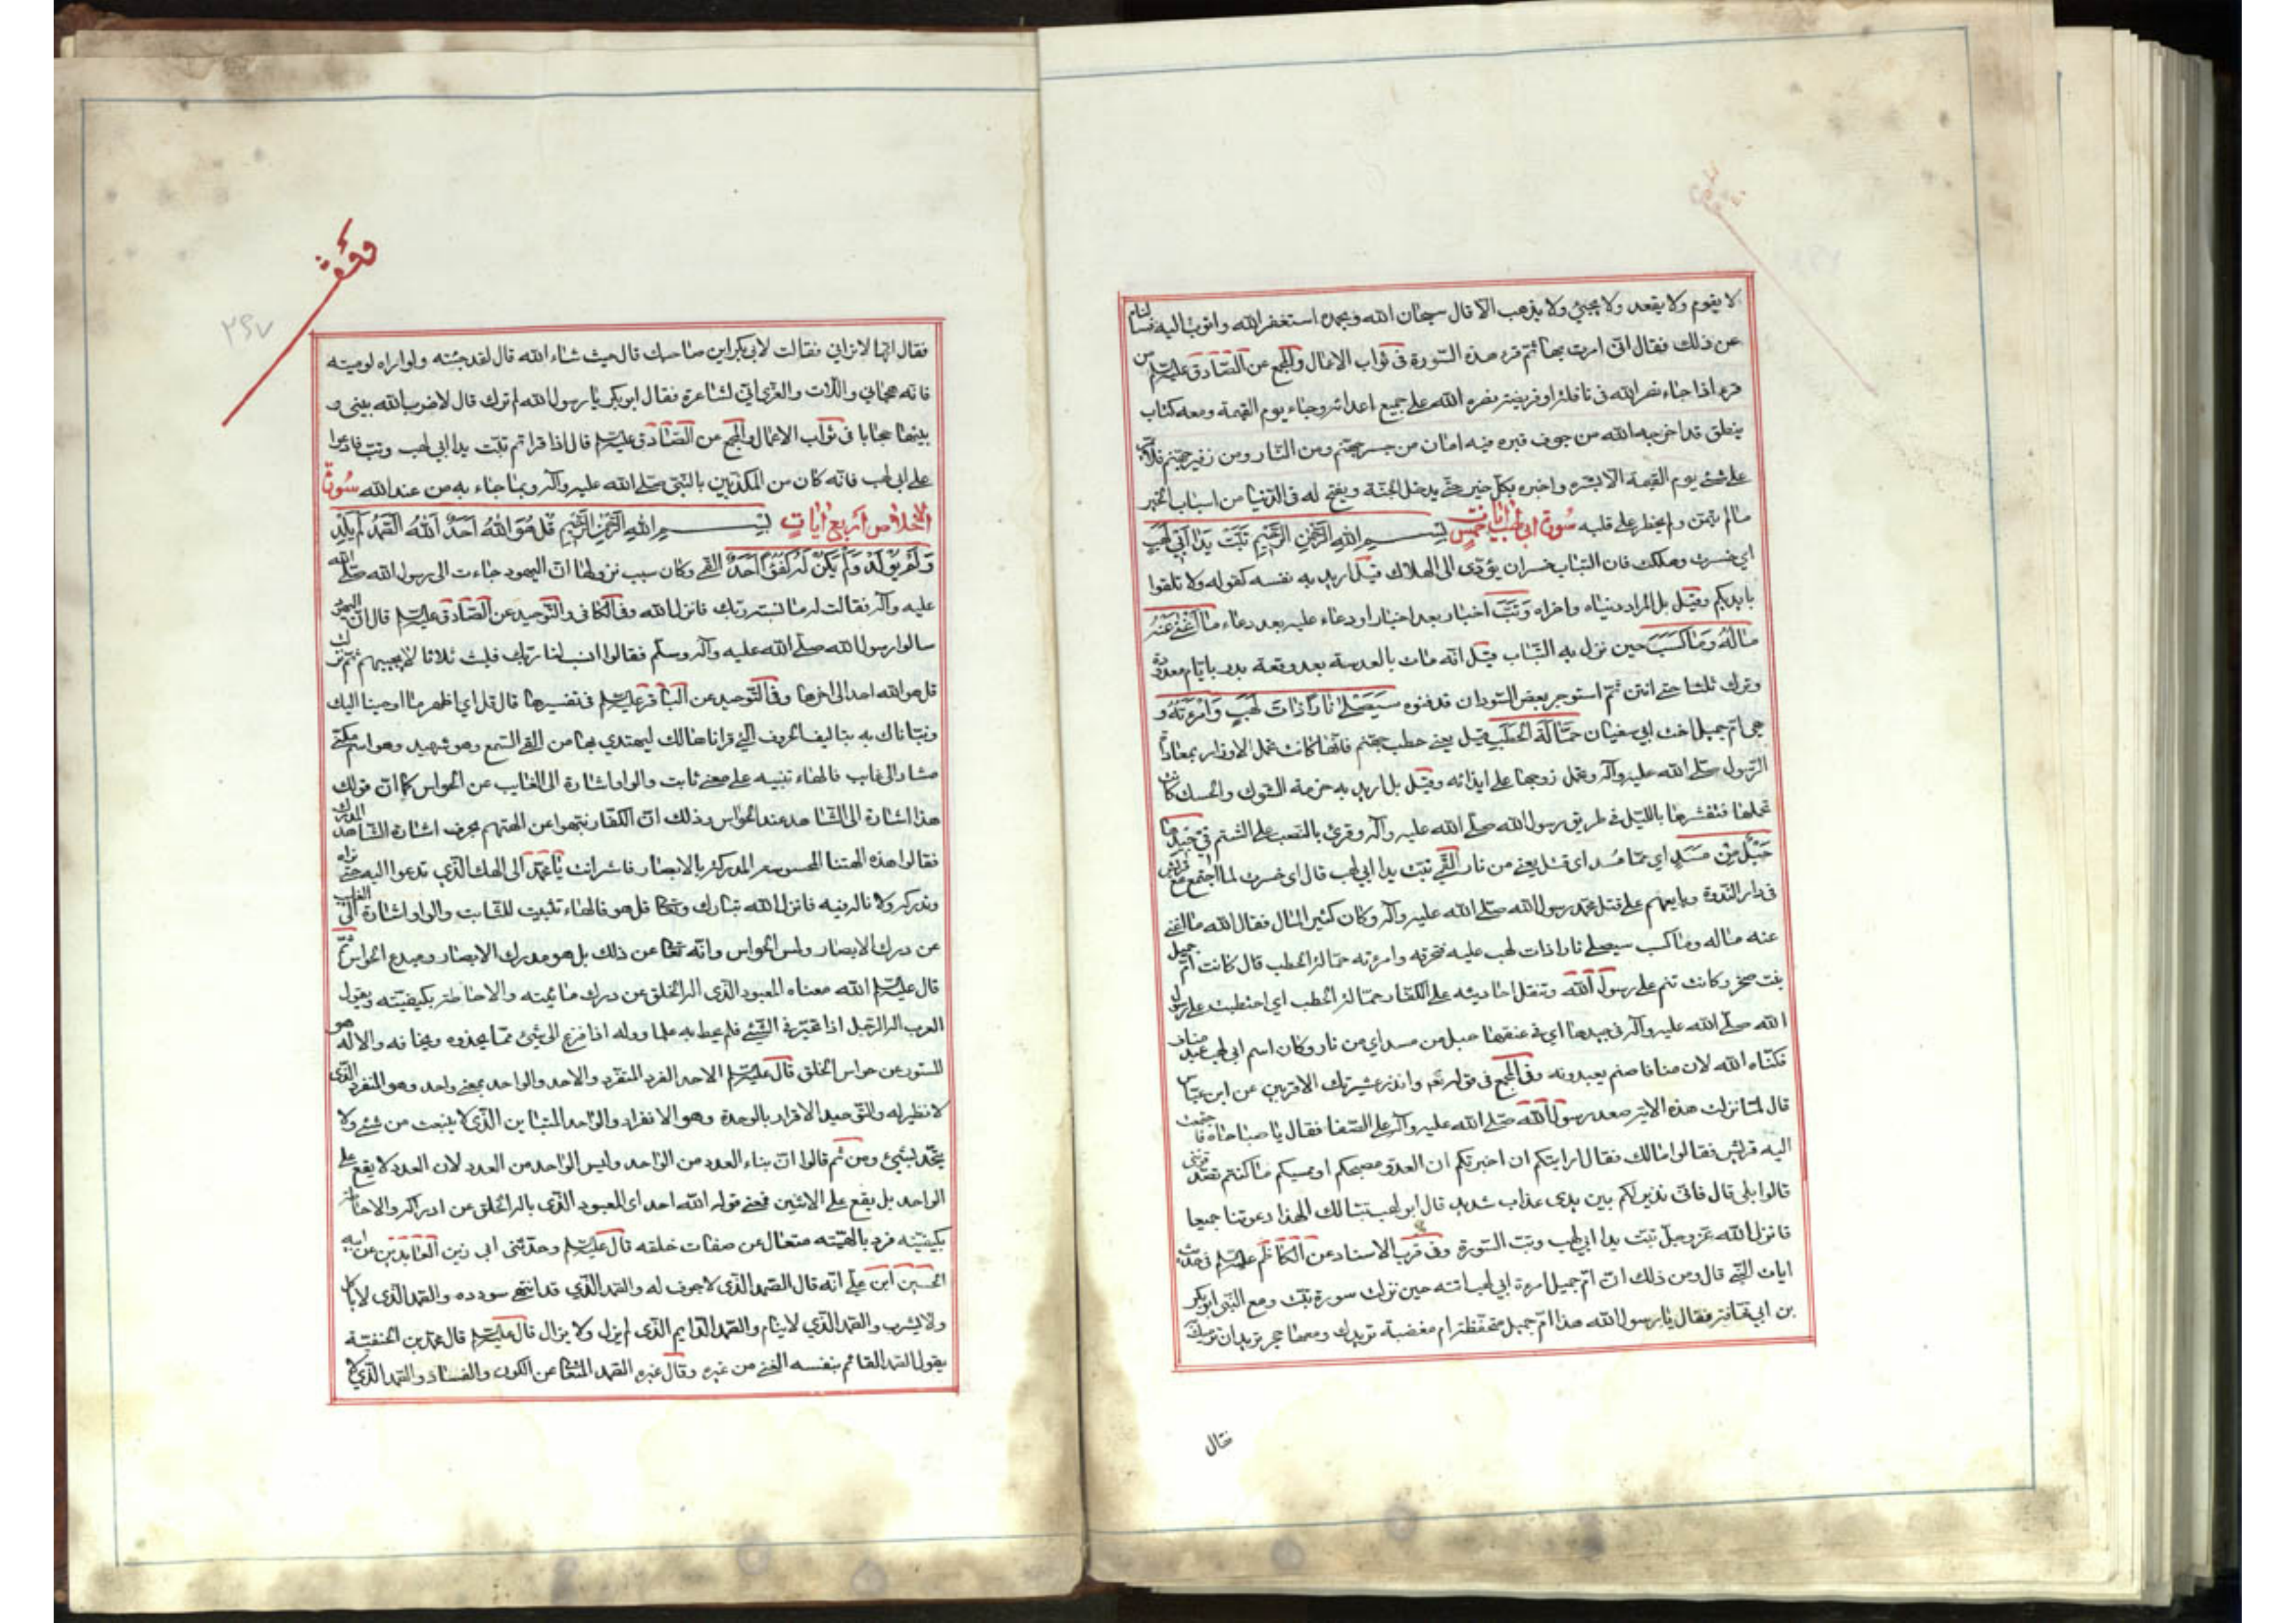 لا يقوم ولا يقعد ولا يجيئ ولا يذهب الا قال سبحان الله وبحمده استغفر الله واتوب اليه فسالناه
عن ذلك فقال انى امرت بها ثم قرء هذه السّورة فى ثواب الاعمال والمجمع عن الصّادق عليه السلم من
قرء اذا جاء نصر الله فى نافلة او فريضة نصره الله على جميع اعدائه وجاء يوم القيمة ومعه كتاب
ينطق قد اخرجه الله من جوف قبره فيه امان من جسر جهنّم ومن النّار ومن زفير جهنّم فلا يمر
على شئ يوم القيمة الا بشره واخبره بكلّ خير حتّى يدخل الجنّة ويفتح له فى الدّنيا من اسباب الخير
مالم يتمن ولم يخطر على قلبه سُورة ابى لهب خمس ايات بِسْمِ اللهِ الرَّحْمٰنِ الرَّحيْمِ تَبَّتْ يَدٰا اَبي لَهَبٍ
اي خسرت وهلكت فان التباب خسران يؤدى الى الهلاك قيل اريد به نفسه كقوله ولا تلقوا
بايديكم وقيل بل المراد دنياه واخراه وَتَبَّ اخبار بعد اخبار او دعاء عليه بعد دعاء مٰا اَغْنٰى عَنْهُ
مٰالُهُ وَمٰا كَسَبَ حين نزل به التباب قيل انه مات بالعدسة بعد وقعة بدر بايام معدودة
وترك ثلثا حتى انتن ثم استوجر بعض السّودان قد فنوه سَيَصْلٰى نٰاراً ذٰاتَ لَهَبٍ وَامْرَءَتُهُ و
هى امّ جميل اخت ابى سفيان حَمّٰالَةَ الْحَطَبِ قيل يعنى حطب جهنّم فانّها كانت تحمل الاوزار بمعاداة
الرّسول صلّى الله عليه وآله وتحمل زوجها على ايذائه وقيل بل اريد به حزمة الشوك والحسك كانت
تحملها فتنشرها بالليل فى طريق رسول الله صلّى الله عليه وآله وقرئ بالنصب على الشتم فى جيدها
حَبْلٌ مِنْ مَسَدٍ اي ممّا مُسد اى فتل يعنى من نار القمّى تبت يدا ابي لهب قال اى خسرت لما اجتمع مع قريش
فى دار النّدوة وبايعهم على قتل محمّد رسول الله صلّى الله عليه وآله وكان كثير المال فقال الله ما اغنى
عنه ماله وما كسب سيصلى نارا ذات لهب عليه فتحرقه وامرءته حمّالة الحطب قال كانت امّ جميل
بنت صخر وكانت تنم على رسول الله وتنقل احاديثه على الكفّار حمّالة الحطب اي احتطبت على رسول
الله صلّى الله عليه وآله فى جيدها اى فى عنقها حبل من مسد اي من نار وكان اسم ابى لهب عبد مناف
فكنّاه الله لان منافا صنم يعبدونه وفى المجمع فى قوله تعه وانذر عشيرتك الاقربين عن ابن عبّاس
قال لمّا نزلت هذه الاية صعد رسول الله صلّى الله عليه وآله على الصّفا فقال يا صباحاه فاجتمعت
اليه قريش فقالوا مالك فقال ارايتكم ان اخبرتكم ان العدوّ مصبحكم او ممسيكم ما كنتم تصدقوننى
قالوا بلى قال فانّى نذير لكم بين يدى عذاب شديد قال ابو لهب تبّا لك الهذا دعوتنا جميعا
فانزل الله عزّ وجلّ تبّت يدا ابى لهب وتبّ السّورة وفى قرب الاسناد عن الكاظم عليه السلم فى حديث
ايات النّبى قال ومن ذلك انّ امّ جميل امرءة ابى لهب اتته حين نزلت سورة تبّت ومع النّبى ابو بكر
بن ابى قحافة فقال يا رسول الله هذا امّ جميل متحفّظة ام مغضبة تريدك ومعها حجر تريد ان ترميك
فقال
٢٩٧
فقال انّها لا ترانى فقالت لابي بكر اين صاحبك قال حيث شاء الله قال لقد جئته ولو اراه لرميته
فانّه هجانى واللّات والعزّى انّى لشاعرة فقال ابو بكر يا رسول الله لم ترك قال لا ضرب الله بينى و
بينها حجابا فى ثواب الاعمال والمجمع عن الصّادق عليه السلم قال اذا قراتم تبّت يدا ابى لهب وتبّ فادعوا
على ابى لهب فانّه كان من المكذّبين بالنّبى صلّى الله عليه وآله وبما جاء به من عند الله سُورة
الاخلاص أربع اٰيات بِسْمِ اللهِ الرَّحْمٰنِ الرَّحيْمِ قُلْ هُوَ اللهُ اَحَدٌ اَللهُ الصَّمَدُ لَمْ يَلِدْ
وَلَمْ يُوْلَدْ وَلَمْ يَكُنْ لَهُ كُفُوًا اَحَدٌ القمى وكان سبب نزولها انّ اليهود جاءت الى رسول الله صلّى الله
عليه وآله فقالت له ما نسبة ربّك فانزل الله وفى الكافى والتّوحيد عن الصّادق عليه السلم قال انّ اليهود
سالوا رسول الله صلّى الله عليه وآله وسلّم فقالوا انسب لنا ربّك فلبث ثلاثا لا يجيبهم ثم نزلت
قل هو الله احد الى اخرها وفى التّوحيد عن الباقر عليه السلم فى تفسيرها قال قل اي اظهر ما اوحينا اليك
ونبّاناك به بتاليف الحروف الّتى قراناها لك ليهتدي بها من القى السّمع وهو شهيد وهو اسم مكنّى
مشار الى غايب فالهاء تنبيه على معنى ثابت والواو اشارة الى الغايب عن الحواس كما انّ قولك
هذا اشارة الى الشّاهد عند الحواس وذلك انّ الكفّار نبّهوا عن الهتهم بحرف اشارة الشّاهد المدرك
فقالوا هذه الهتنا المحسوسة المدركة بالابصار فاشر انت يا محمّد الى الهك الّذي تدعوا اليه حتّى نراه
وندركه ولا ناله فيه فانزل الله تبارك وتعالى قل هو فالهاء تثبيت للثّابت والواو اشارة الى الغايب
عن درك الابصار ولمس الحواس وانّه تعالى عن ذلك بل هو مدرك الابصار ومبدع الحواس ثمّ
قال عليه السلم الله معناه المعبود الّذى اله الخلق عن درك مائيّته والاحاطة بكيفيّته ويقول
العرب اله الرّجل اذا تحيّر فى الشّئ فلم يحط به علما ووله اذا فزع الى شئ ممّا يحذره ويخافه والاله هو
المستور عن حواس الخلق قال عليه السلم الاحد الفرد المتفرّد والاحد والواحد بمعنى واحد وهو المتفرد الّذى
لا نظير له والتّوحيد الاقرار بالوحدة وهو الانفراد والواحد المتباين الّذى لا ينبعث من شئ ولا
يتّحد بشئ ومن ثم قالوا انّ بناء العدد من الواحد وليس الواحد من العدد لان العدد لا يقع على
الواحد بل يقع على الاثنين فمعنى قوله الله احد اى المعبود الّذى ياله الخلق عن ادراكه والاحاطة
بكيفيّته فرد بالهيّته متعال عن صفات خلقه قال عليه السلم وحدّثنى ابى زين العابدين عن ابيه
الحسين ابن على انّه قال الصّمد الّذى لا جوف له والصّمد الّذي قد انتهى سودده والصّمد الّذى لا ياكل
ولا يشرب والصّمد الّذي لا ينام والصّمد الدّايم الّذى لم يزل ولا يزال قال عليه السلم قال محمّد بن الحنفيّة
يقول الصّمد القائم بنفسه الغنى من غيره وقال غيره الصّمد المتعالى عن الكون والفساد والصّمد الّذي لا